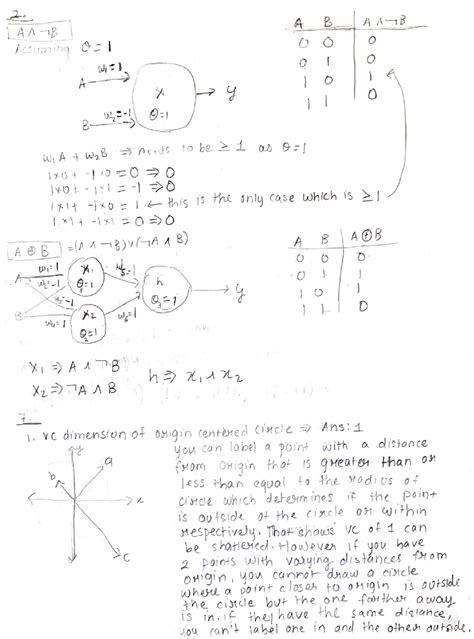 2.
A ∧ ¬B
Assuming θ = 1
w₁=1
A
w₂=-1
B
x₁
θ=1
y
A B A ∧ ¬B
0 0 0
0 1 0
1 0 1
1 1 0
w₁A + w₂B ⇒ needs to be ≥ 1 as θ=1
1×0 + -1×0 = 0 ⇒ 0
1×0 + -1×1 = -1 ⇒ 0
1×1 + -1×0 = 1 ← this is the only case which is ≥1
1×1 + -1×1 = 0 ⇒ 0
A ⊕ B = (A ∧ ¬B) ∨ (¬A ∧ B)
A
w₁=1
w₂=-1
x₁
θ=1
B
w₃=-1
w₄=1
x₂
θ₂=1
w₅=1
w₆=1
h
θ₃=1
y
A B A⊕B
0 0 0
0 1 1
1 0 1
1 1 0
x₁ ⇒ A ∧ ¬B
x₂ ⇒ ¬A ∧ B
h ⇒ x₁ ∧ x₂
7.
1. VC dimension of origin centered circle ⇒ Ans: 1
y
a
b
x
c
you can label a point with a distance
from origin that is greater than or
less than equal to the radius of
circle which determines if the point
is outside of the circle or within
respectively. That shows VC of 1 can
be shattered. However if you have
2 points with varying distances from
origin, you cannot draw a circle
where a point closer to origin is outside
the circle but the one farther away
is in. if they have the same distance,
you can't label one in and the other outside.